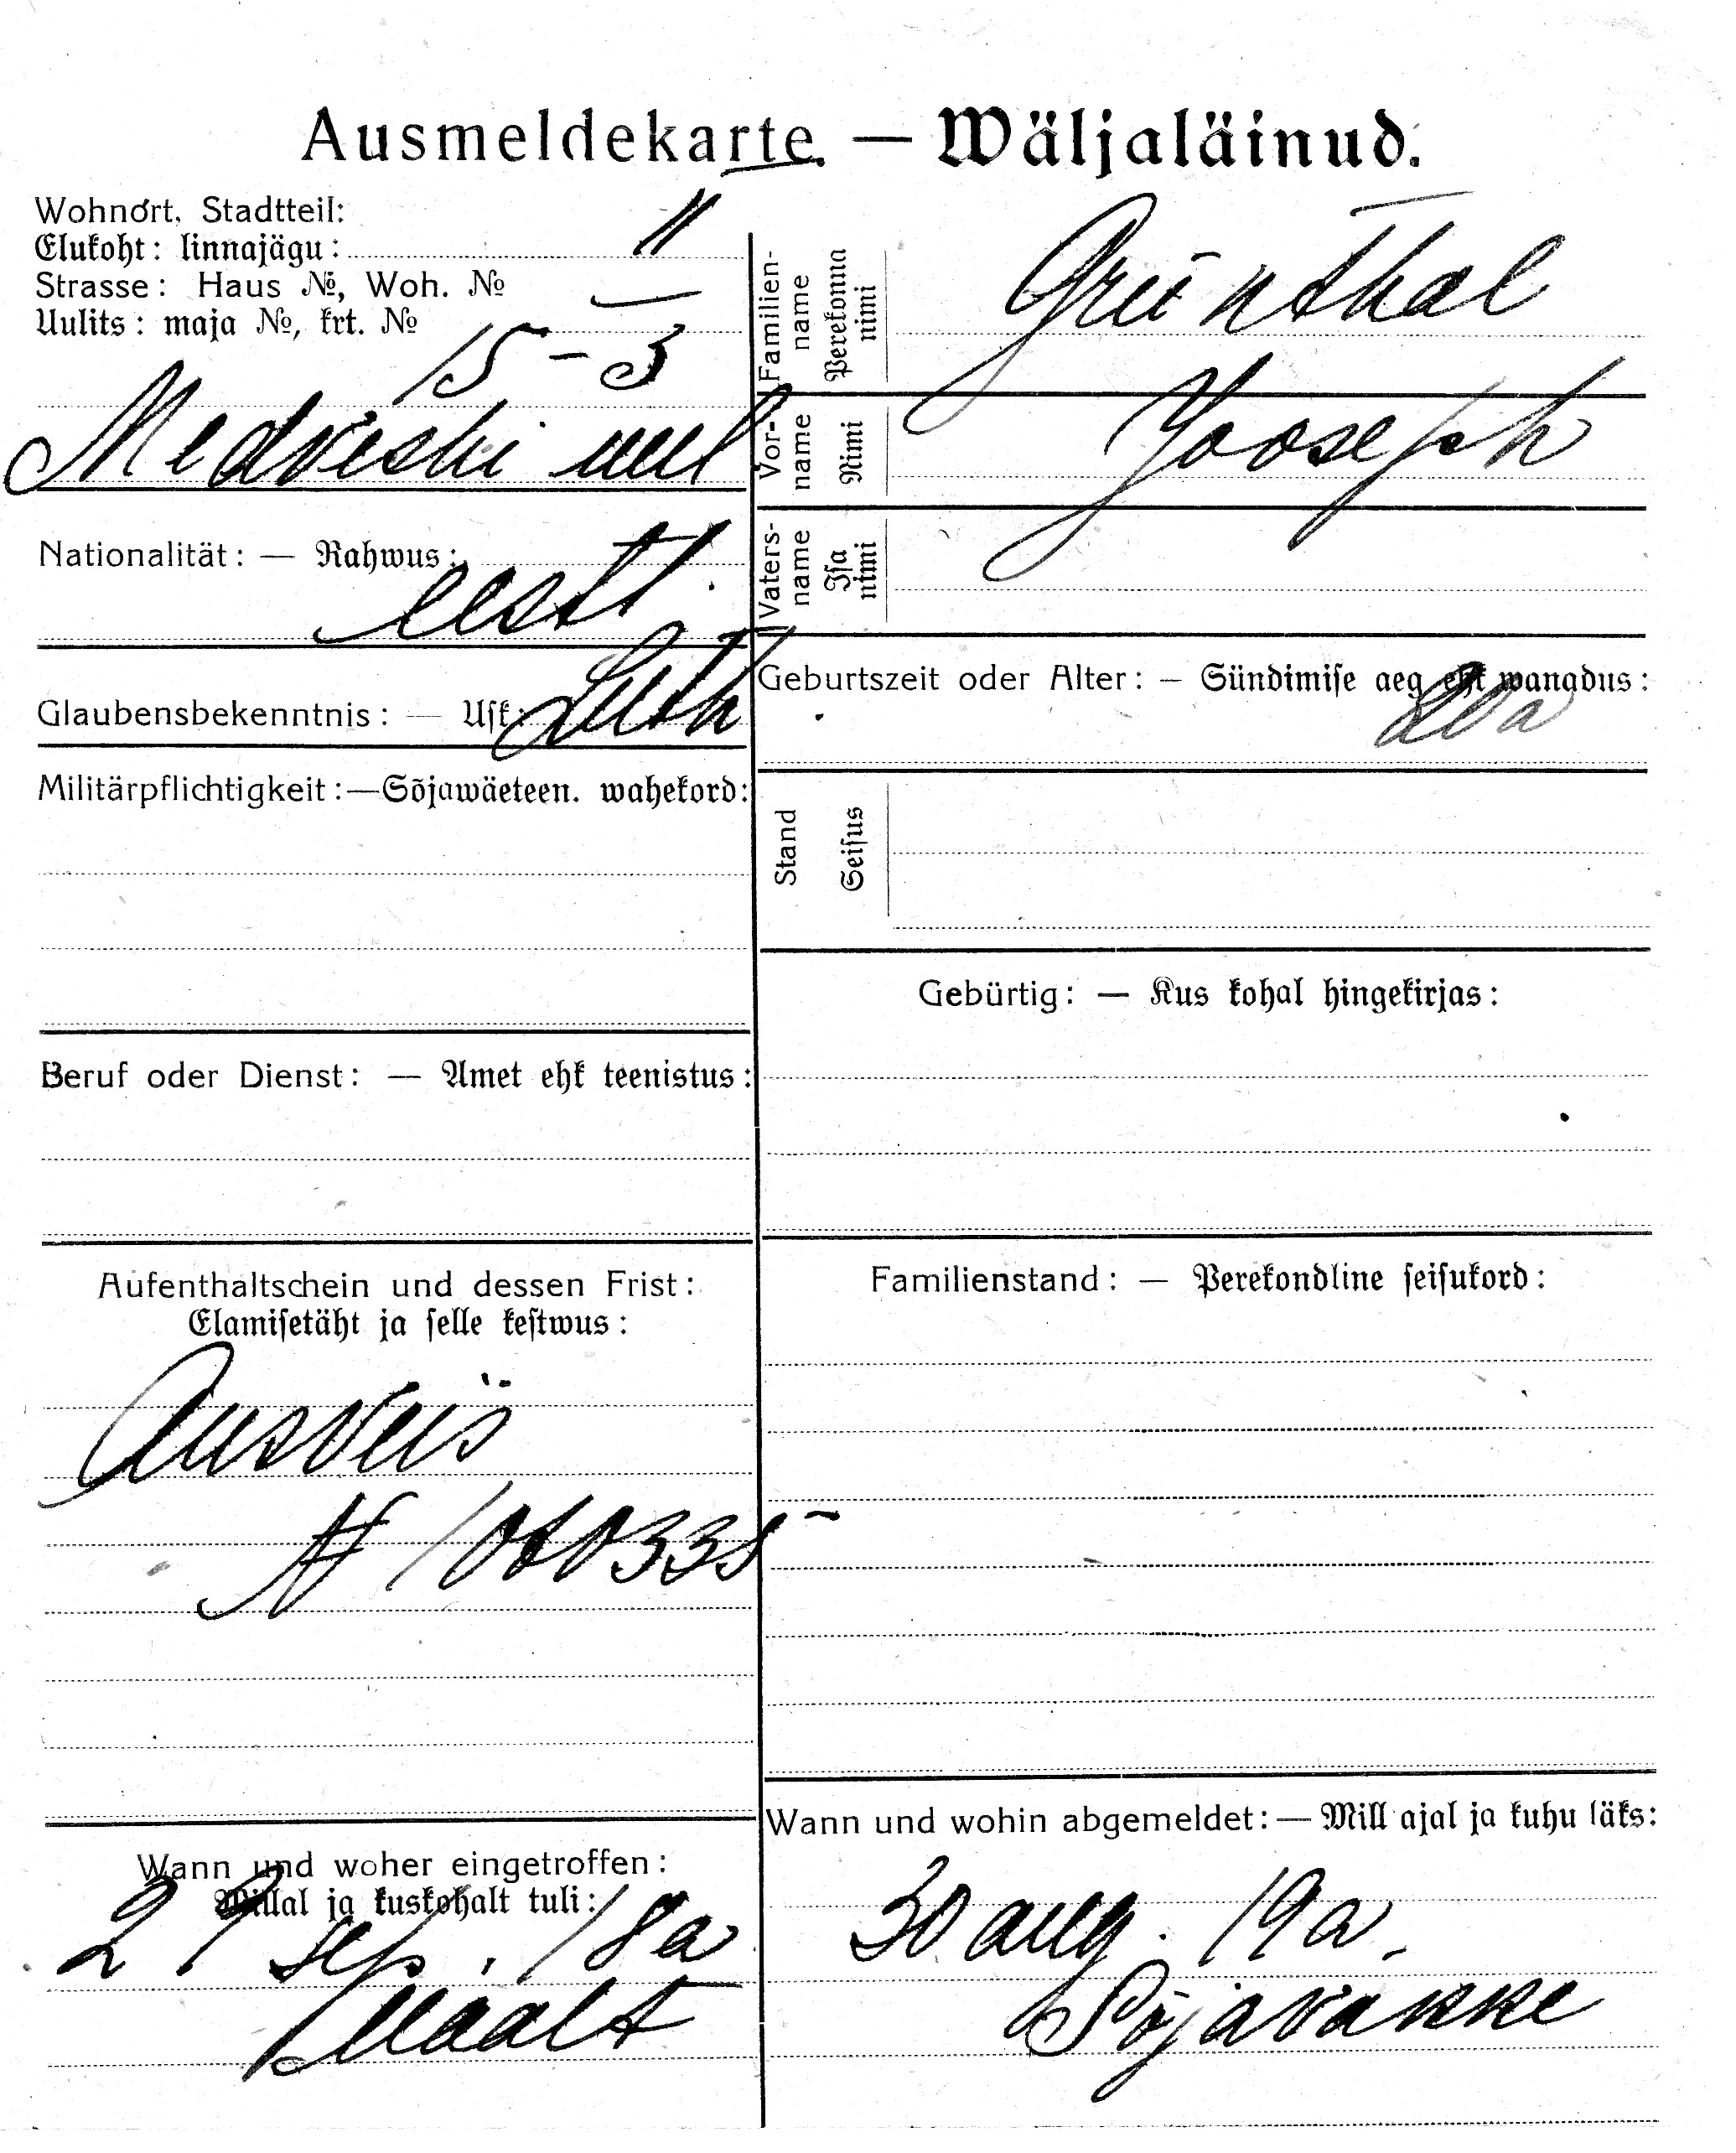 Ausmeldekarte. — Wäljaläinud.
Wohnort, Stadtteil:
Elukoht: linnajägu: II
Strasse: Haus №, Woh. №
Uulits: maja №, krt. №
15 – 3
Medveski uul
Nationalität: — Rahwus:
eesti
Glaubensbekenntnis: — Usk: Luth
Militärpflichtigkeit: — Sõjawäeteen. wahekord:
Beruf oder Dienst: — Amet ehk teenistus:
Aufenthaltschein und dessen Frist:
Elamisetäht ja selle kestwus:
Ausveis
N
Wann und woher eingetroffen:
Millal ja kuskohalt tuli:
29 sep. 18 a
Maalt
Familien-
name
Perekonna
nimi
Grünthal
Vor-
name
Nimi
Jooseph
Vaters-
name
Isa
nimi
Geburtszeit oder Alter: — Sündimise aeg ehk wanadus:
20 a
Stand
Seisus
Gebürtig: — Kus kohal hingekirjas:
Familienstand: — Perekondline seisukord:
Wann und wohin abgemeldet: — Mill ajal ja kuhu läks:
30 aug. 19 a.
Sõjavākke